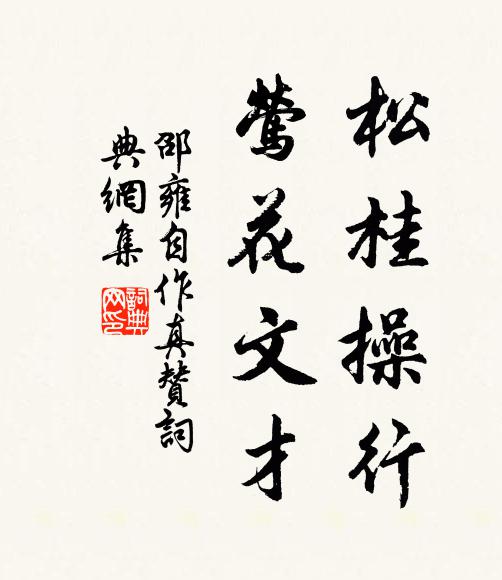 松桂操行
鶯花文才
邵雍自作真贊詞
典網集
詞典
网印